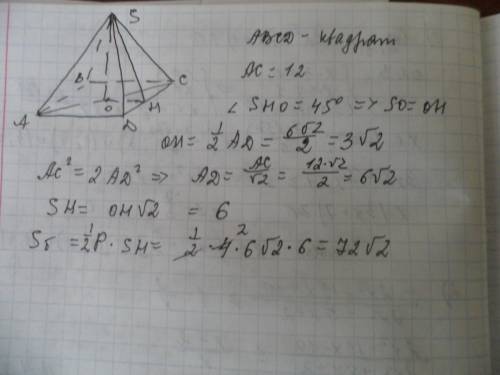 S
B
C
O
H
A
D
ABCD - квадрат
AC = 12
∠ SHO = 45° => SO = OH
OH = 1/2 AD = 6√2/2 = 3√2
AC² = 2AD² => AD = AC/√2 = 12·√2/2 = 6√2
SH = OH√2 = 6
Sб = 1/2 P · SH = 1/2 · 4 · 6√2 · 6 = 72√2
2